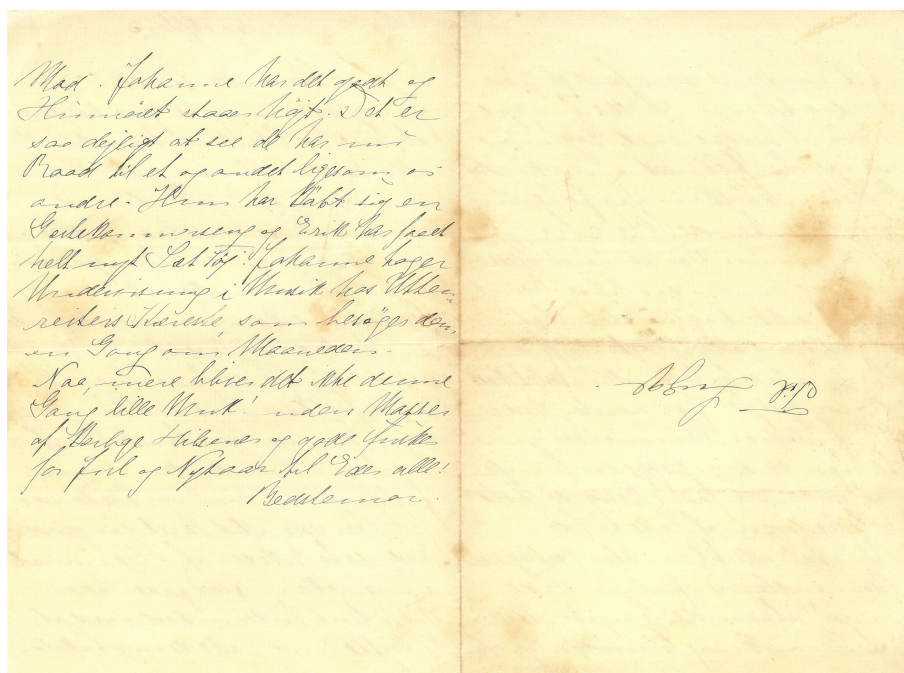 Mod. Johanne har det godt og
Humöret staar högt. Det er
saa dejligt at see de har nu
Raad til et og andet ligesom vi
andre. Hun har köbt sig en
og Erik har faaet
helt nyt Sæt Töj. Johanne tager
Undervisning i Musik hos Utten-
reiters Kæreste, som besöges dem
en Gang om Maaneden.
Naa, mere bliver det ikke denne
Gang lille Muk! uden Masser
af Kærlige Hilsener og gode Önsker
for Jul og Nytaar til Eder alle!
Bedstemor.